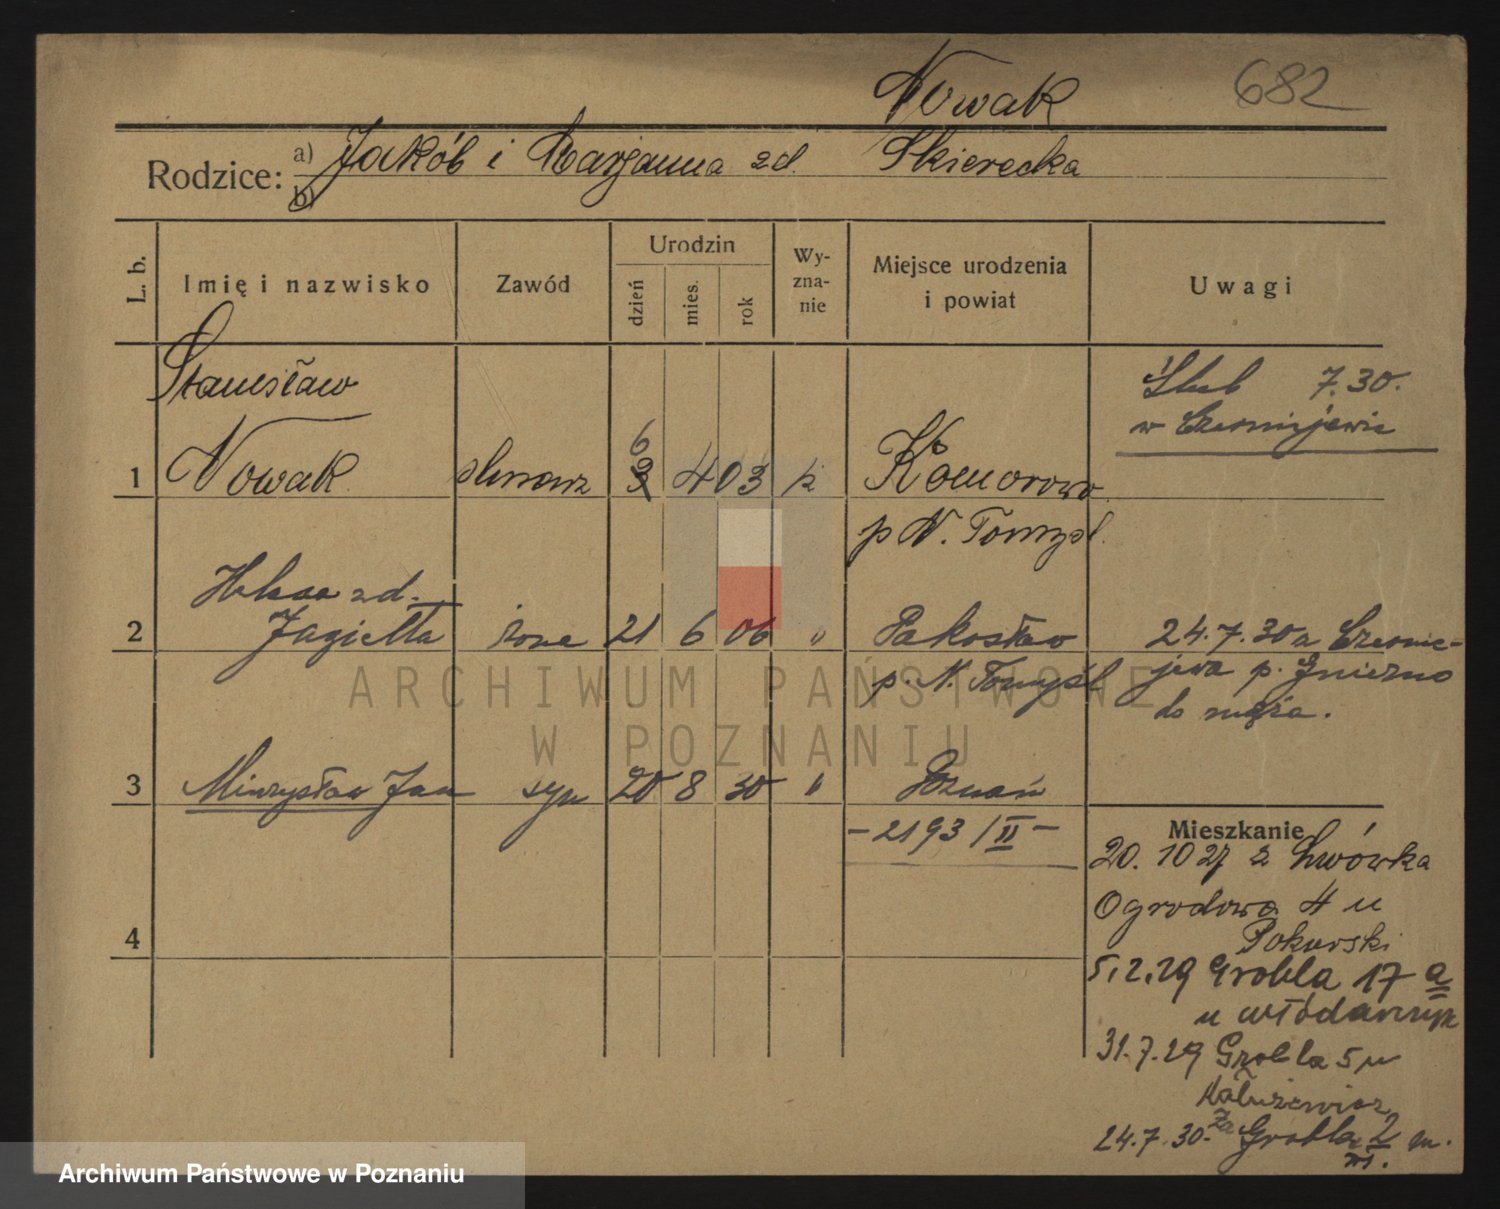 Nowak 682
Rodzice: a) Jakób i Marjanna zd. Skierecka
b)
L. b. Imię i nazwisko Zawód Urodzin dzień mies. rok Wy-zna-nie Miejsce urodzenia i powiat Uwagi
Stanisław
Ślub 7.30.
w Czerniejewie
6
1 Nowak ślusarz 3 4 03 k Komorowo
p N. Tomyśl.
Helena zd.
2 Jagiełła żona 21 6 06 " Pakosław 24.7.30 z Czernie-
p. N. Tomyśl jewa p. Gniezno
do męża.
3 Mieczysław Jan syn 20 8 30 " Poznań
- 2193/II -
Mieszkanie
20. 10 27 z Lwówka
Ogrodowa 4 u
4
Pokorski
5.2.29 Grobla 17 a
u Włódarczyk
31.7.29 Grobla 5 u
Kałużewicz
24.7.30. Grobla 2 m.
ARCHIWUM PAŃSTWOWE
W POZNANIU
Archiwum Państwowe w Poznaniu